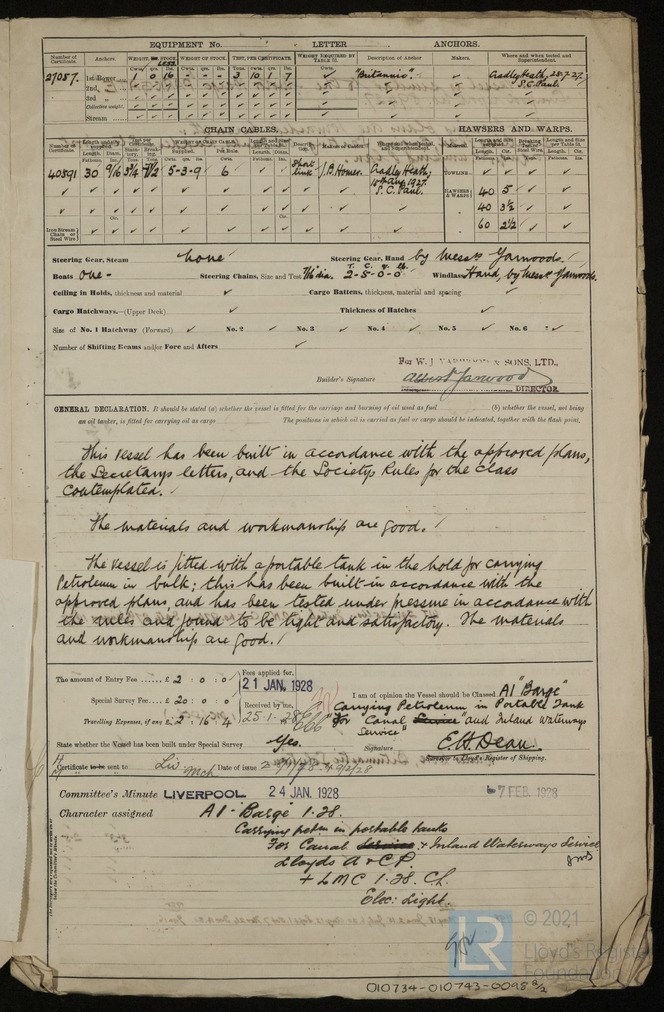 EQUIPMENT No. LETTER ANCHORS.
Number of Certificate. Anchors. WEIGHT, EX. STOCK. WEIGHT OF STOCK. TEST, PER CERTIFICATE. WEIGHT REQUIRED BY TABLE 53. Description of Anchor Makers. Where and when tested and Superintendent.
27057. 1st Bower 1 0 16 - - - 3 10 1 7 "Britannic". Cradley Heath, 28.7.27. S. C. Paul.
2nd
3rd
Collective weight
Stream
CHAIN CABLES. HAWSERS AND WARPS.
40591 30 9/16 3¾ 7½ 5-3-9 6 Short link J. B. Homer. Cradley Heath, 18th Aug. 1927. S. C. Paul. TOWLINE
HAWSERS & WARPS 40 5
40 3½
60 2½
Iron Stream Chain or Steel Wire
Steering Gear, Steam none Steering Gear, Hand by Messrs Yarwoods.
Boats one - Steering Chains, Size and Test 7/16 dia. 2-5-0-0 Windlass Hand, by Messrs Yarwoods.
Ceiling in Holds, thickness and material Cargo Battens, thickness, material and spacing
Cargo Hatchways.—(Upper Deck) Thickness of Hatches
Size of No. 1 Hatchway (Forward) No. 2 No. 3 No. 4 No. 5 No. 6
Number of Shifting Beams and/or Fore and Afters
For W. J. YARWOOD & SONS, LTD.,
Builder's Signature Albert Yarwood
DIRECTOR
GENERAL DECLARATION. It should be stated (a) whether the vessel is fitted for the carriage and burning of oil used as fuel (b) whether the vessel, not being
an oil tanker, is fitted for carrying oil as cargo The positions in which oil is carried as fuel or cargo should be indicated, together with the flash point.
This vessel has been built in accordance with the approved plans,
the Secretarys letters, and the Societys Rules for the class
contemplated.
The materials and workmanship are good.
The vessel is fitted with a portable tank in the hold for carrying
Petroleum in bulk; this has been built in accordance with the
approved plans, and has been tested under pressure in accordance with
the rules and found to be tight and satisfactory. The materials
and workmanship are good.
The amount of Entry Fee £ 2 : 0 : 0 Fees applied for, 21 JAN. 1928
Special Survey Fee £ 20 : 0 : 0 Received by me, 25.1.28
Travelling Expenses, if any £ 2 : 16 : 4
I am of opinion the Vessel should be Classed A1 "Barge"
Carrying Petroleum in Portable Tank
"For Canal Service and Inland Waterways
Service"
State whether the Vessel has been built under Special Survey Yes. Signature E. H. Dean.
Surveyor to Lloyd's Register of Shipping.
Certificate to be sent to Liv. Mch Date of issue 9/2/28
Committee's Minute LIVERPOOL 24 JAN. 1928 7 FEB. 1928
Character assigned A1 - Barge 1.28.
Carrying petm in portable tanks
For Canal Service & Inland Waterways Service
Lloyds A & C.P.
+ LMC 1.28. C.L.
Elec: Light.
LR © 2021
Lloyd's Register
Foundation
010734-010743-0098 2/2